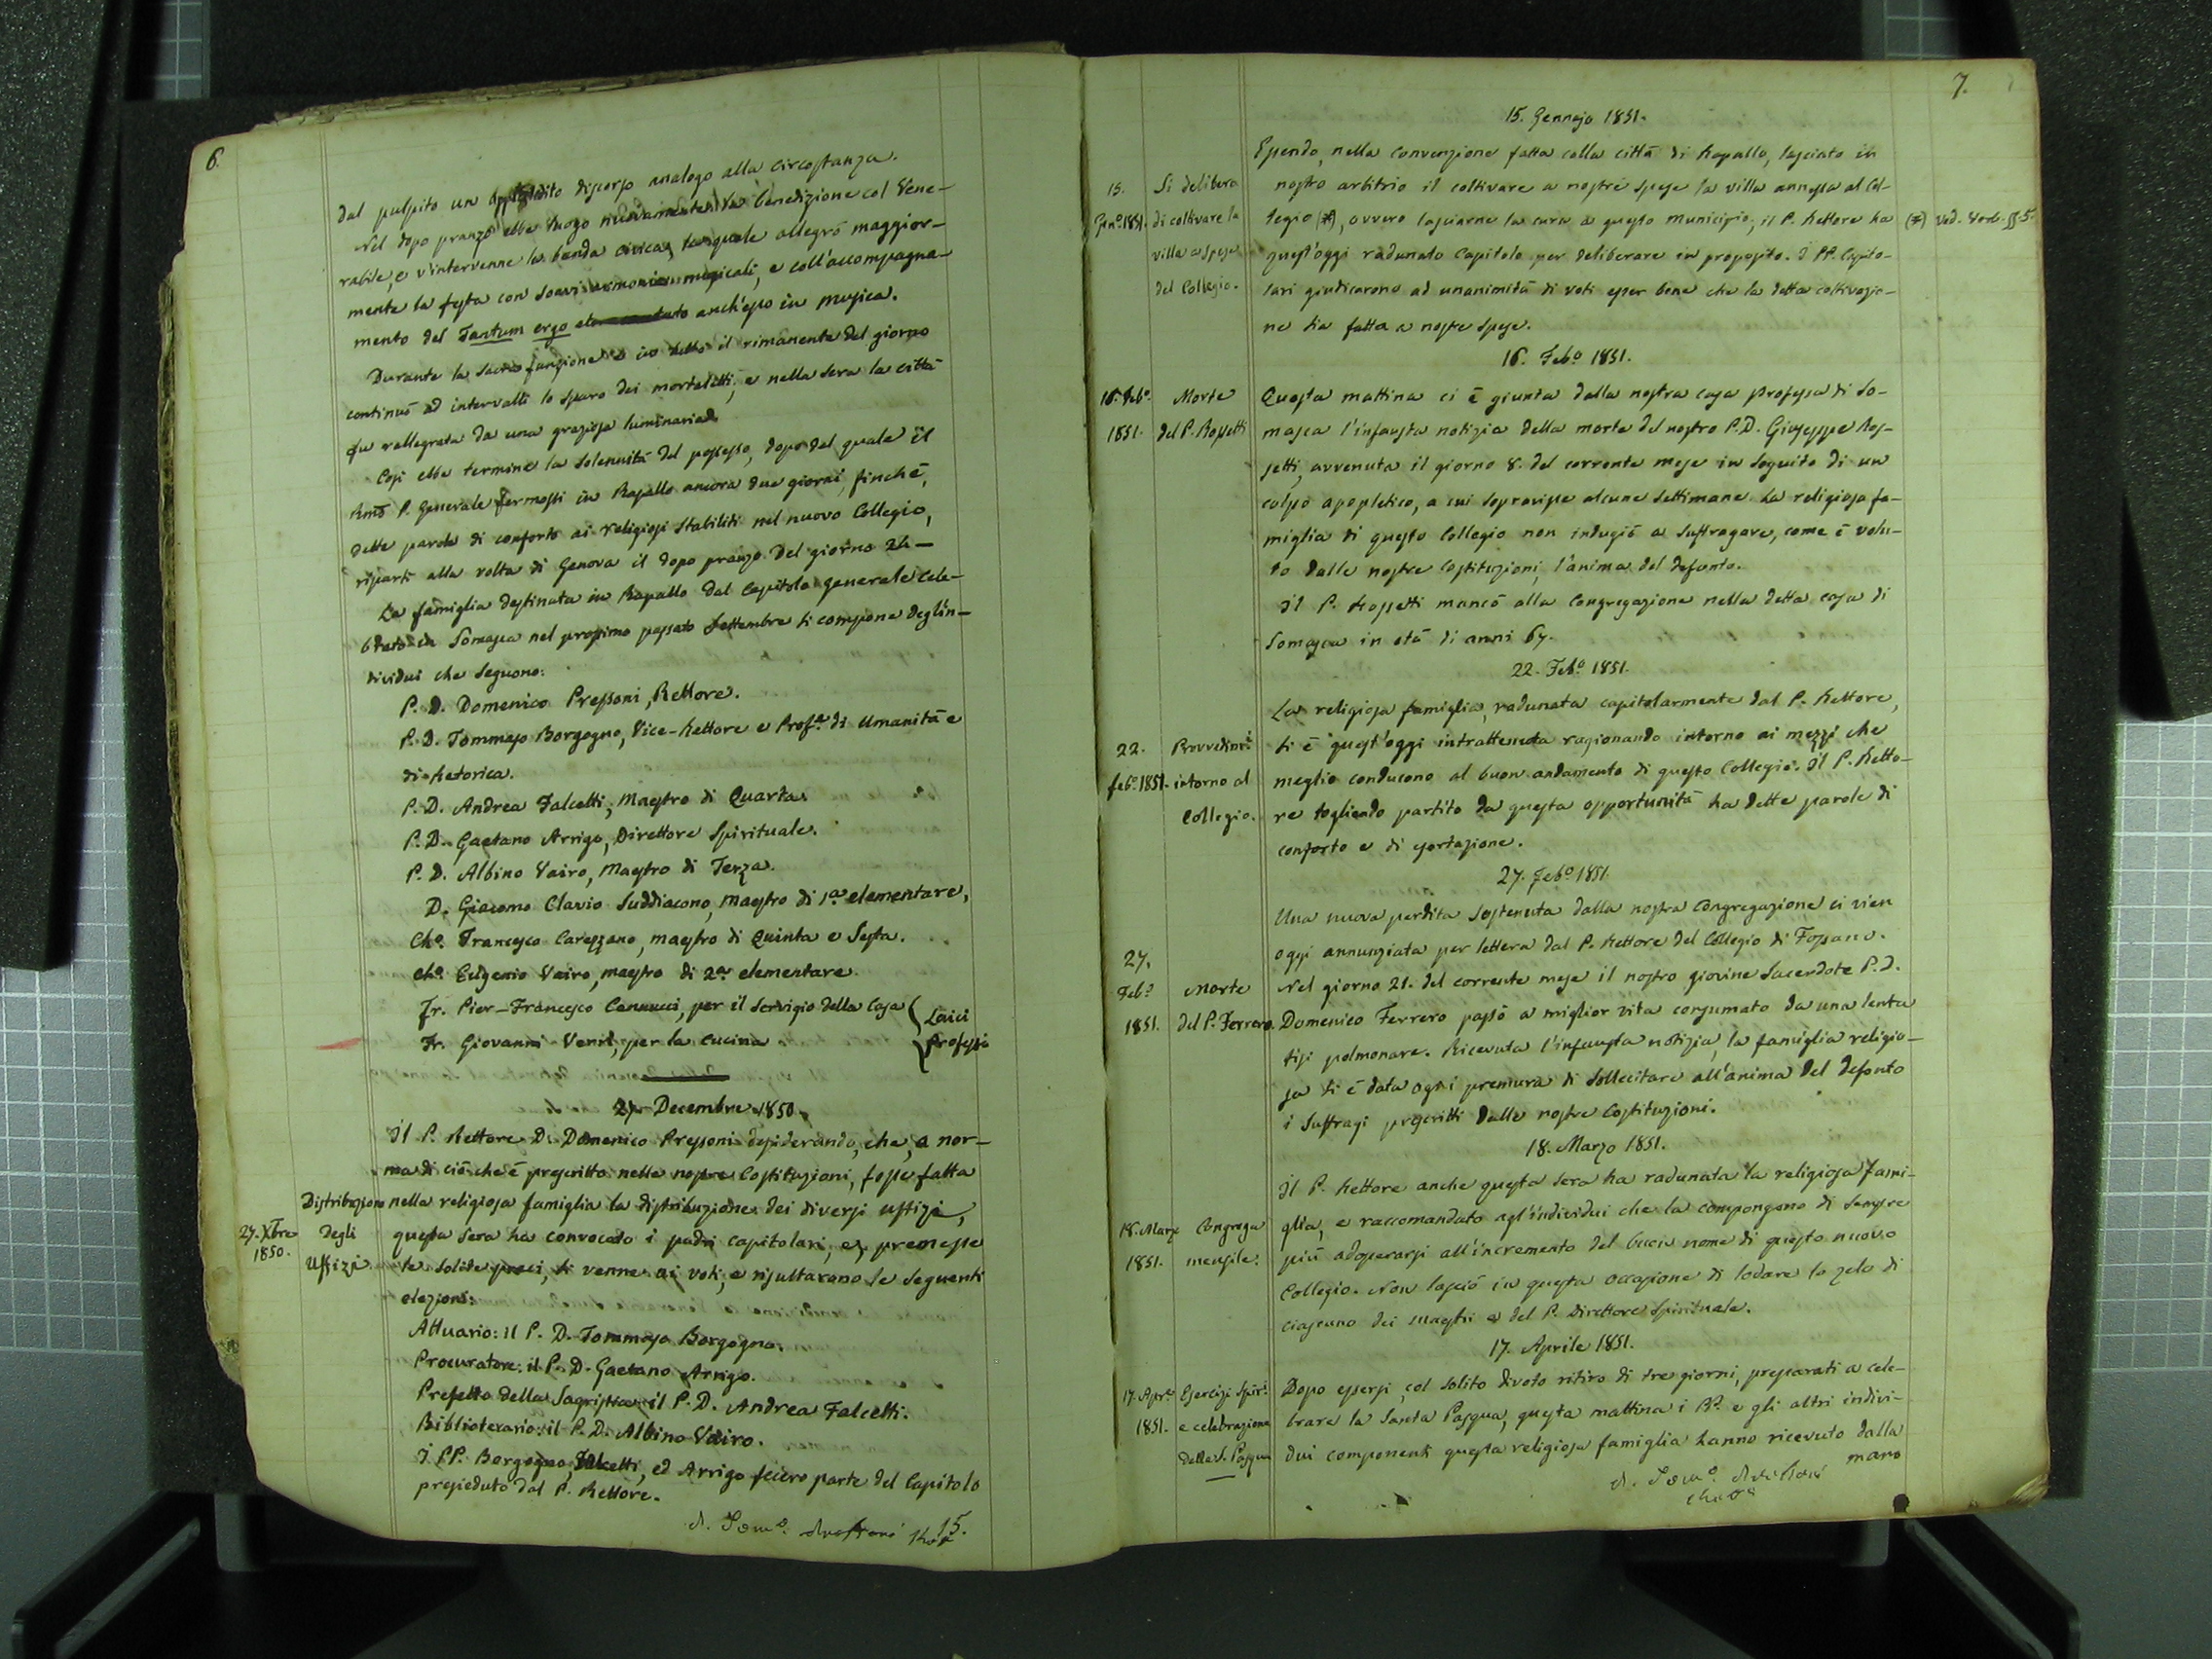 6.
dal pulpito un applaudito discorso analogo alla circostanza.
Nel dopo pranzo ebbe luogo nuovamente la benedizione col Vene-
rabile, e v'intervenne la banda civica, la quale allegrò maggior-
mente la festa con soavi armonie musicali, e coll'accompagna-
mento del Tantum ergo anch'esso in musica.
Durante la sacra funzione e in tutto il rimanente del giorno
continuò ad intervalli lo sparo dei mortaletti; e nella sera la città
fu rallegrata da una graziosa luminaria.
Così ebbe termine la solennità del possesso, dopo del quale il
Rmo P. Generale fermossi in Rapallo ancora due giorni, finchè,
dette parole di conforto ai religiosi stabiliti nel nuovo Collegio,
ripartì alla volta di Genova il dopo pranzo del giorno 24 —
La famiglia destinata in Rapallo dal Capitolo generale cele-
brato in Somasca nel prossimo passato Settembre si compone degl'in-
dividui che seguono:
P. D. Domenico Pressoni, Rettore.
P. D. Tommaso Borgogno, Vice-Rettore e Profe. di Umanità e
di Retorica.
P. D. Andrea Falcetti, Maestro di Quarta.
P. D. Gaetano Arrigo, Direttore Spirituale.
P. D. Albino Vairo, Maestro di Terza.
D. Giacomo Clavio Suddiacono, Maestro di 1a elementare,
Cho. Francesco Caressano, maestro di Quinta e Sesta.
Cho. Eugenio Vairo, maestro di 2a elementare.
Fr. Pier-Francesco Canuuci, per il Servigio della Casa
Fr. Giovanni Venil, per la cucina
Laici
Professi
27 Decembre 1850.
Il P. Rettore D. Domenico Pressoni desiderando, che, a nor-
ma di ciò che è prescritto nelle nostre Costituzioni, fosse fatta
nella religiosa famiglia la distribuzione dei diversi uffizi,
questa sera ha convocato i padri capitolari, e, premesse
le solite preci, si venne ai voti, e risultarono le seguenti
elezioni:
Distribuzione
degli
Uffizi.
27. Xbre
1850.
Attuario: il P. D. Tommaso Borgogno.
Procuratore: il P. D. Gaetano Arrigo.
Prefetto della Sagristia: il P. D. Andrea Falcetti.
Bibliotecario: il P. D. Albino Vairo.
I PP. Borgogno, Falcetti, ed Arrigo fecero parte del Capitolo
presieduto dal P. Rettore.
15.
7.
15. Gennajo 1851.
Essendo, nella convenzione fatta colla città di Rapallo, lasciato in
nostro arbitrio il coltivare a nostre spese la villa annessa al Col-
legio (*), ovvero lasciarne la cura a questo municipio, il P. Rettore ha
quest'oggi radunato Capitolo per deliberare in proposito. I PP. Capito-
lari giudicarono ad unanimità di voti esser bene che la detta coltivazio-
ne sia fatta a nostre spese.
15.
Genº 1851.
Si delibera
di coltivare la
villa a spese
del Collegio.
(*) Ved. 5.
16. Febº 1851.
Questa mattina ci è giunta dalla nostra casa professa di So-
masca l'infausta notizia della morte del nostro P. D. Giuseppe Ros-
setti, avvenuta il giorno 8. del corrente mese in seguito di un
colpo apopletico, a cui sopravisse alcune settimane. La religiosa fa-
miglia di questo Collegio non indugiò a suffragare, come è volu-
to dalle nostre Costituzioni, l'anima del defunto.
Il P. Rossetti mancò alla Congregazione nella detta casa di
Somasca in età di anni 67.
16. Febº
1851.
Morte
del P. Rossetti
22. Febº 1851.
La religiosa famiglia, radunata capitolarmente dal P. Rettore,
si è quest'oggi intrattenuta ragionando intorno ai mezzi che
meglio conducono al buon andamento di questo Collegio. Il P. Retto-
re togliendo partito da questa opportunità ha dette parole di
conforto e di esortazione.
22.
Febº 1851.
Provvedimti
intorno al
Collegio.
27. Febº 1851.
Una nuova perdita sostenuta dalla nostra Congregazione ci vien
oggi annunziata per lettera dal P. Rettore del Collegio di Fossano.
Nel giorno 21. del corrente mese il nostro giovine Sacerdote P. D.
Domenico Ferrero passò a miglior vita consumato da una lenta
tisi polmonare. Ricevuta l'infausta notizia, la famiglia religio-
sa si è data ogni premura di sollecitare all'anima del defonto
i suffragi prescritti dalle nostre Costituzioni.
27.
Febº
1851.
Morte
del P. Ferrero.
18. Marzo 1851.
Il P. Rettore anche questa sera ha radunata la religiosa fami-
glia, e raccomandato agl'individui che la compongono di sempre
più adoperarsi all'incremento del buon nome di questo nuovo
Collegio. Non lasciò in questa occasione di lodare lo zelo di
ciascuno dei maestri e del P. Direttore Spirituale.
18. Marzo
1851.
Congrega
mensile.
17. Aprile 1851.
Dopo essersi, col solito divoto ritiro di tre giorni, preparati a cele-
brare la Santa Pasqua, questa mattina i RR. e gli altri indivi-
dui componenti questa religiosa famiglia hanno ricevuto dalla
mano
17. Apre
1851.
Esercizi Spiri.
e celebrazione
della S. Pasqua